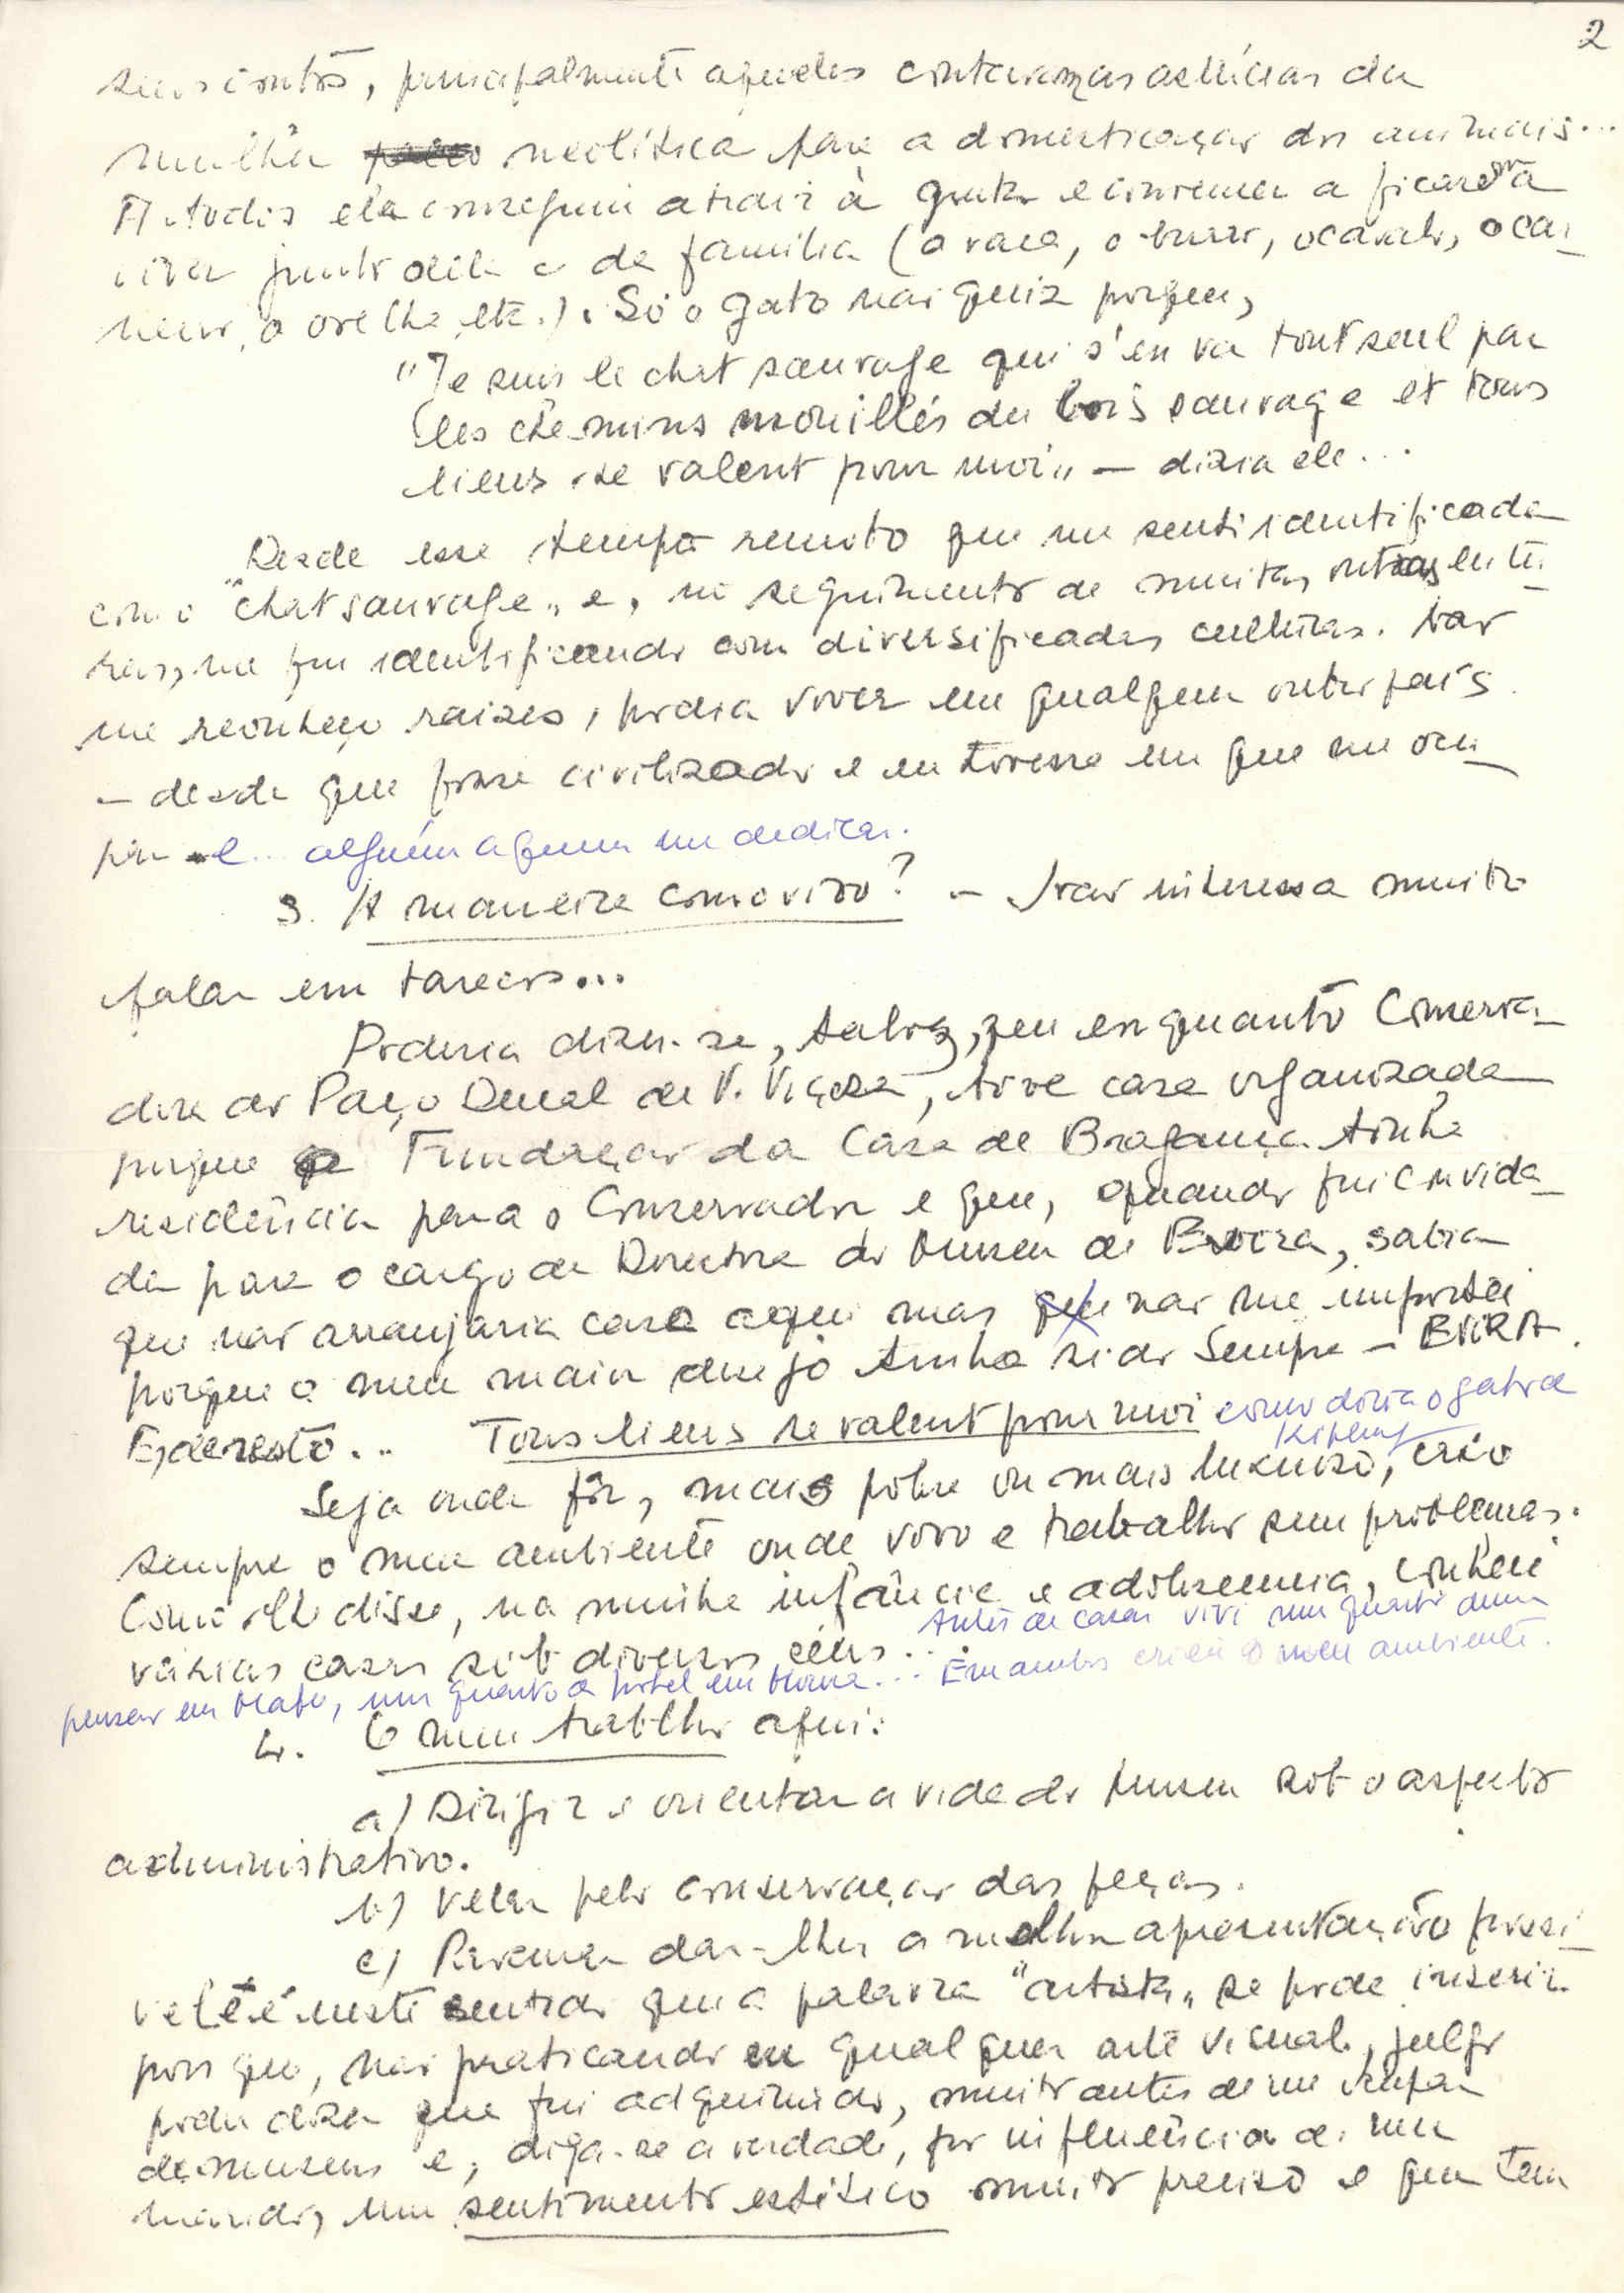 2
seus contos, principalmente aqueles contavam as astúcias da
mulher neolítica para a domesticação dos animais...
A todos ela conseguiu atrair à gruta e convencer a ficar e a
viver junto dela e da família (a vaca, o burro, o cavalo, o car-
neiro, a ovelha, etc.). Só o gato não quiz porque,
"Je suis le chat sauvage qui s'en va tout seul par
les chemins mouillés du bois sauvage et tous
lieux se valent pour moi" — dizia ele...
Desde esse tempo remoto que me senti identificada
com o "chat sauvage" e, no seguimento de muitas outras leitu-
ras, me fui identificando com diversificadas culturas. Não
me reconheço raizes, podia viver em qualquer outro país
— desde que fosse civilizado e eu tivesse em que me ocu-
par e... alguém a quem me dedicar.
3. A maneira como vivo? — Não interessa muito
falar em tarecos...
Poderia dizer-se, talvez, que enquanto Conserva-
dora do Paço Ducal de V. Viçosa, tive casa organizada
porque a Fundação da Casa de Bragança tinha
residência para o Conservador e que, quando fui convida-
da para o cargo de Directora do Museu de Évora, sabia
que não arranjaria casa aqui mas não me importei
porque o meu maior desejo tinha sido sempre — ÉVORA.
E, de resto... Tous lieux se valent pour moi como dizia o gato de
Kipling
Seja onde fôr, mais pobre ou mais luxuoso, crio
sempre o meu ambiente onde vivo e trabalho sem problemas.
Como lhe disse, na minha infância e adolescencia, conheci
várias casas sob diversos céus... Antes de casar vivi num quarto duma
pensão em Mafra, num quarto de hotel em Moura... Em ambos criei o meu ambiente.
4. O meu trabalho aqui:
a) Dirigir e orientar a vida do Museu sob o aspecto
administrativo.
b) Velar pela conservação das peças.
c) Procurar dar-lhes a melhor apresentação possi-
vel e é neste sentido que a palavra "artista" se pode inserir
pois que, não praticando eu qualquer arte visual, julgo
poder dizer que fui adquirindo, muito antes de me ocupar
de museus e, diga-se a verdade, por influência de meu
marido, um sentimento estético muito preciso e que tem